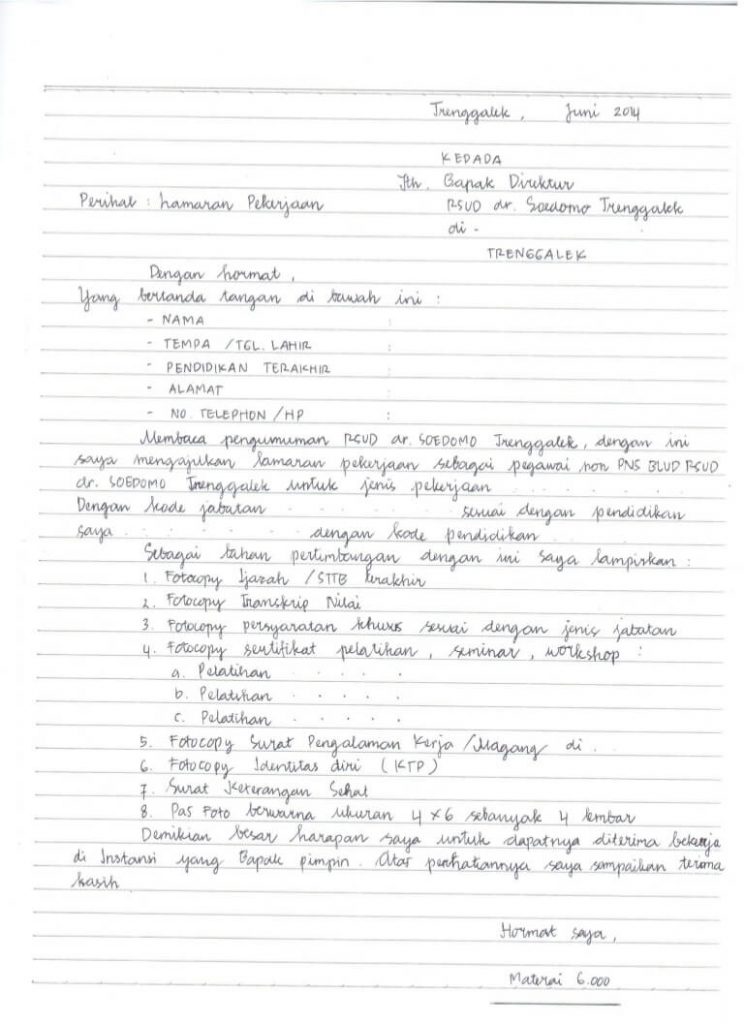 Trenggalek, Juni 2014
KEPADA
Yth. Bapak Direktur
Perihal : Lamaran Pekerjaan RSUD dr. Soedomo Trenggalek
di -
TRENGGALEK
Dengan hormat,
Yang bertanda tangan di bawah ini :
- NAMA :
- TEMPA /TGL. LAHIR :
- PENDIDIKAN TERAKHIR :
- ALAMAT :
- NO. TELEPHON /HP :
Membaca pengumuman RSUD dr. SOEDOMO Trenggalek, dengan ini
saya mengajukan lamaran pekerjaan sebagai pegawai non PNS BLUD RSUD
dr. SOEDOMO Trenggalek untuk jenis pekerjaan . . . . . . . .
Dengan kode jabatan . . . . . . . . sesuai dengan pendidikan
saya . . . . . . . dengan kode pendidikan . . . . . .
Sebagai bahan pertimbangan dengan ini saya lampirkan :
1. Fotocopy Ijazah /STTB terakhir
2. Fotocopy Transkrip Nilai
3. Fotocopy persyaratan khusus sesuai dengan jenis jabatan
4. Fotocopy sertifikat pelatihan, seminar, workshop :
a. Pelatihan . . . . .
b. Pelatihan . . . . .
c. Pelatihan . . . . .
5. Fotocopy Surat Pengalaman Kerja /Magang di . .
6. Fotocopy Identitas diri (KTP)
7. Surat Keterangan Sehat
8. Pas Foto berwarna ukuran 4 x 6 sebanyak 4 lembar
Demikian besar harapan saya untuk dapatnya diterima bekerja
di Instansi yang Bapak pimpin. Atas perhatiannya saya sampaikan terima
kasih
Hormat saya,
Materai 6.000